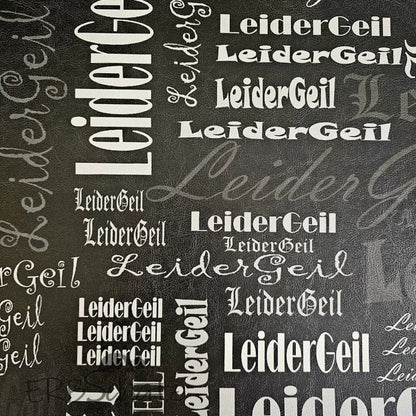 LeiderGeil
LeiderGeil
LeiderGeil
LeiderGeil
LeiderGeil
LeiderGeil
LeiderGeil
LeiderGeil
LeiderGeil
LeiderGeil
LeiderGeil
LeiderGeil
LeiderGeil
LeiderGeil
LeiderGeil
Geil
Geil
Geil
LeiderGeil
LeiderGeil
LeiderGeil
LeiderGeil
LeiderGeil
LeiderGeil
LeiderGeil